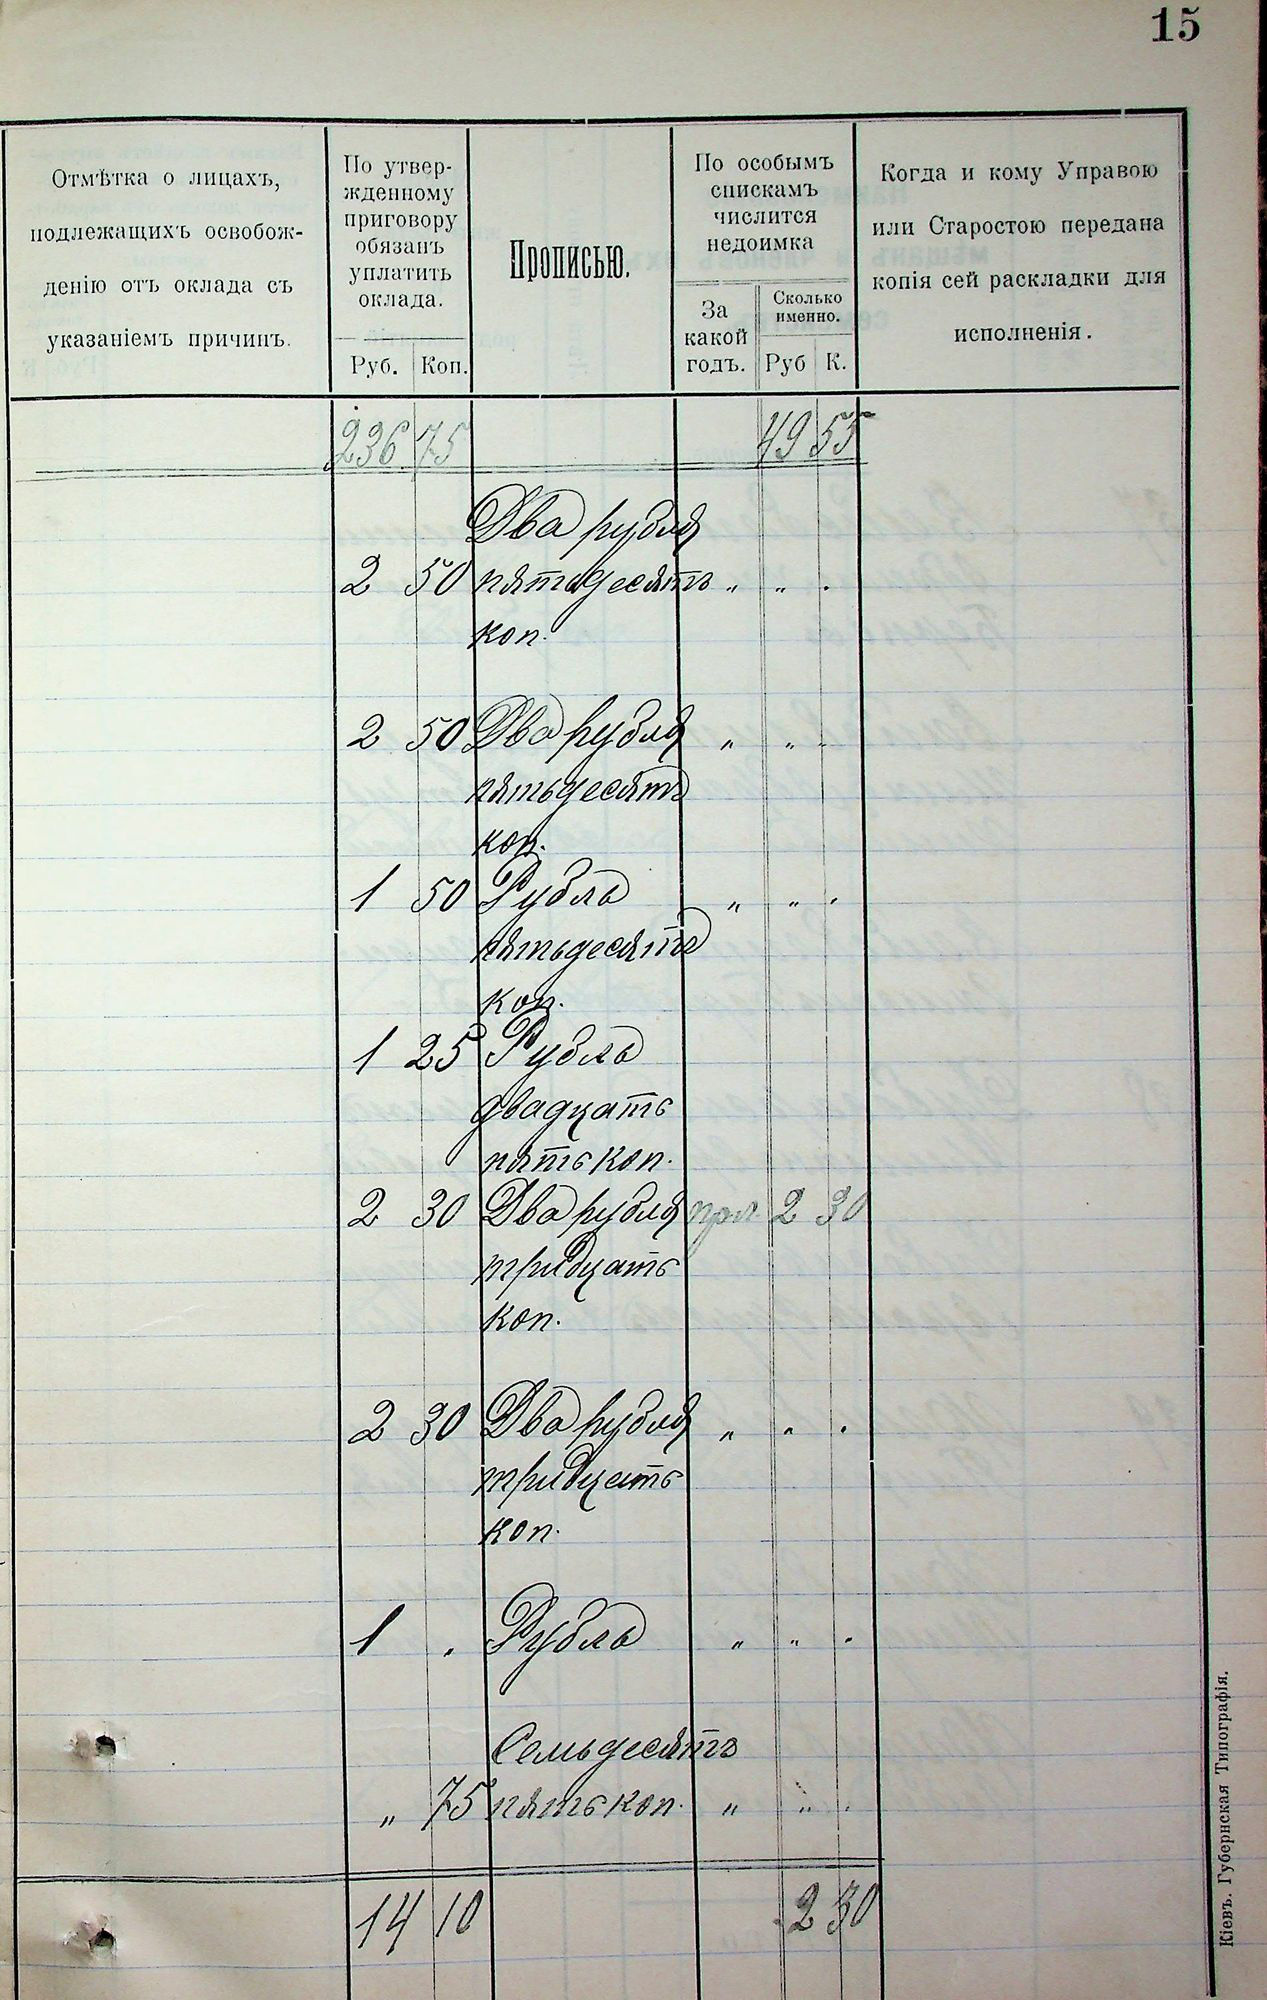 15
Отмѣтка о лицахъ,
подлежащихъ освобож-
денію отъ оклада съ
указаніемъ причинъ.
По утвер-
жденному
приговору
обязанъ
уплатить
оклада.
Руб. Коп.
Прописью.
По особымъ
спискамъ
числится
недоимка
За
какой
годъ.
Сколько
именно.
Руб К.
Когда и кому Управою
или Старостою передана
копія сей раскладки для
исполненія.
236 75 49 55
Два рубля
2 50 пятьдесятъ „ „ .
коп.
2 50 Два рубля „ „ .
пятьдесятъ
коп.
1 50 Рубль „ „ .
пятьдесятъ
коп.
1 25 Рубль
двадцать
пять коп.
2 30 Два рубля 2 30
тридцать
коп.
2 30 Два рубля „ „ .
тридцать
коп.
1 . Рубль „ „ .
Семьдесятъ
„ 75 пять коп. „ „ .
14 10 2 30
Кіевъ. Губернская Типографія.